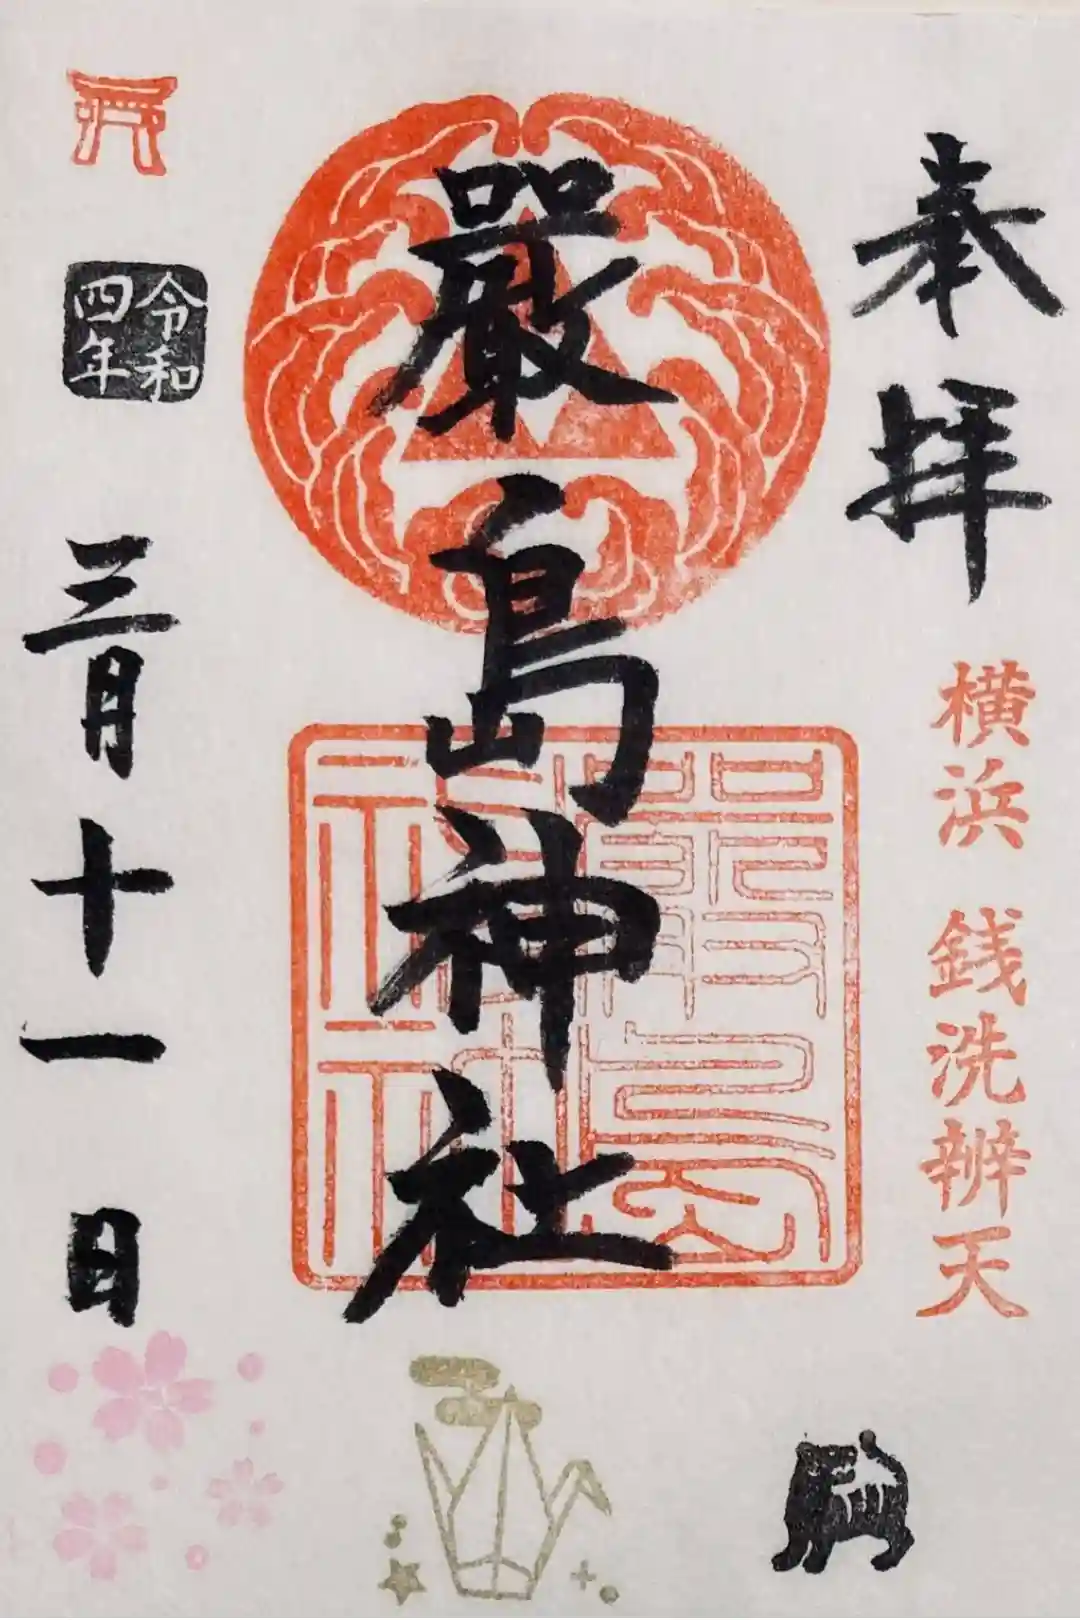 奉拝
横浜 銭洗辨天
嚴島神社
嚴島
神社
令和
四年
三月十一日